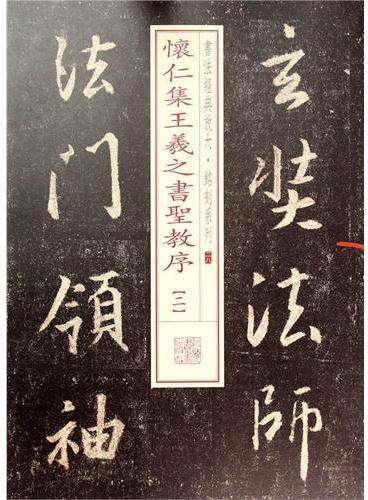 玄奘法師
書法經典放大·銘刻系列
懷仁集王羲之書聖教序【二】
法門領袖